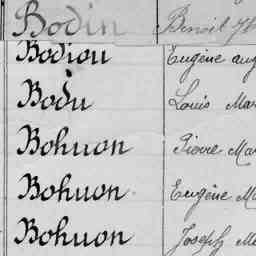 Bodin Benoit
Bodiou Eugène aug
Bodu Louis Mar
Bohuon Pierre Mar
Bohuon Eugène Ma
Bohuon Joseph Ma